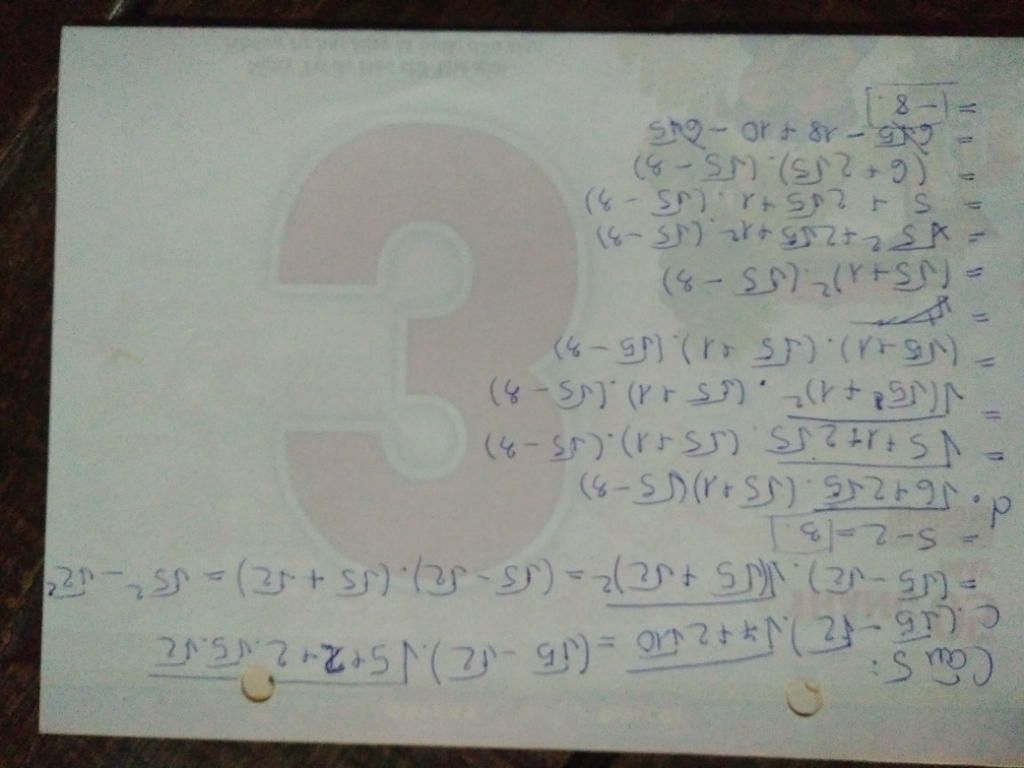 Câu 5:
c. (√5 - √2).√7+2√10 = (√5 - √2).√5+2+2.√5.√2
= (√5 - √2).√(√5 + √2)² = (√5 - √2).(√5 + √2) = √5² - √2²
= 5 - 2 = 3.
d. √6+2√5.(√5+1)(√5-3)
= √5+1+2√5.(√5+1).(√5-3)
= √(√5+1)².(√5+1).(√5-3)
= (√5+1).(√5+1).(√5-3)
=
= (√5+1)².(√5-3)
= √5²+2√5+1².(√5-3)
= 5 + 2√5+1.(√5-3)
= (6+2√5).(√5-3)
= 6√5 - 18 + 10 - 6√5
= -8.